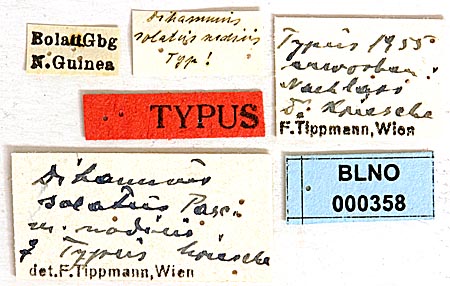 Bolan Gbg
N. Guinea
Dihammus
solatus nodicis
Typ!
Typus 1955
erworben.
Nachlass
D. Kriesche
F. Tippmann, Wien
TYPUS
Dihammus
solatus Pasc.
m. nodicis
Typus Kriesche
det. F. Tippmann, Wien
BLNO
000358